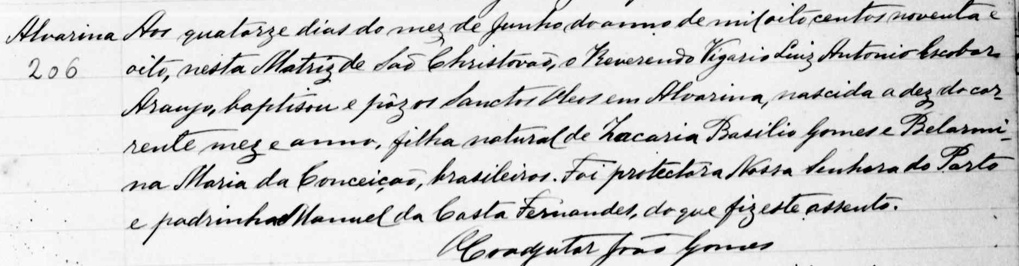 Alvarina Aos quatorze dias do mez de Junho do anno de mil oito centos noventa e
206 oito, nesta Matriz de São Christovão, o Reverendo Vigario Luiz Antonio Escobar
Araujo, baptisou e pôz os Sanctos Oleos em Alvarina, nascida a dez do cor-
rente mez e anno, filha natural de Zacaria Basilio Gomes e Belarmi-
na Maria da Conceição, brasileiros. Foi protectora Nossa Senhora do Parto
e padrinho Manuel da Costa Fernandes, do que fiz este assento.
O Coadjutor João Gomes